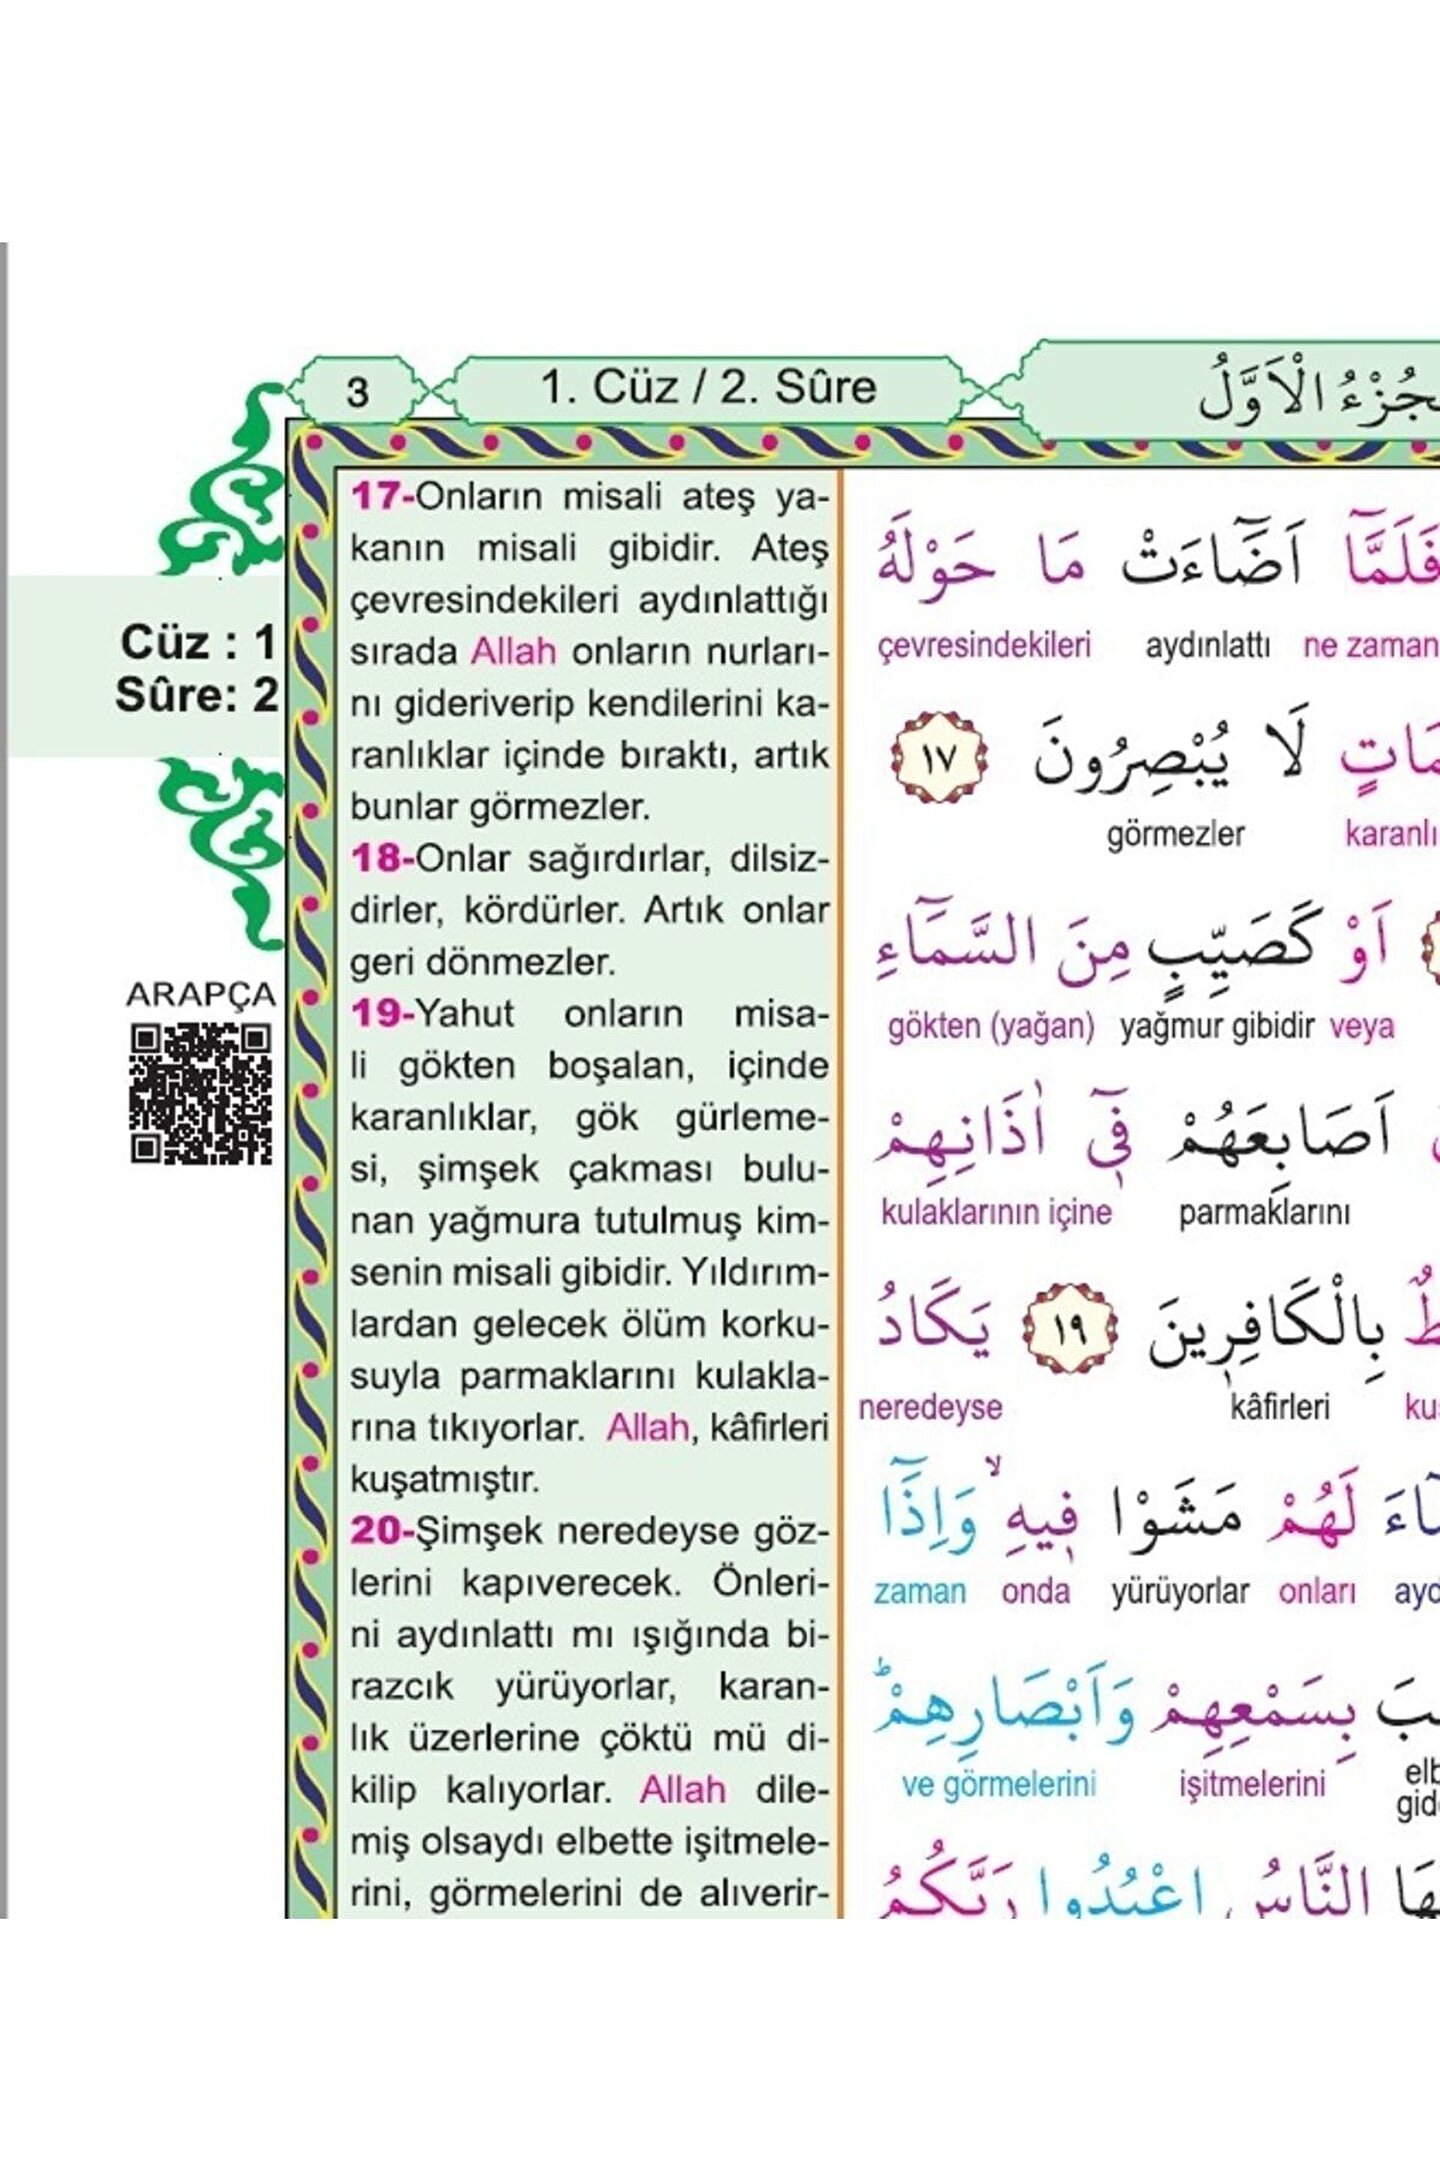 3
1. Cüz / 2. Sûre
اَلْجُزْءُ الْاَوَّلُ
Cüz : 1
Sûre: 2
ARAPÇA
17-Onların misali ateş ya-
kanın misali gibidir. Ateş
çevresindekileri aydınlattığı
sırada Allah onların nurları-
nı gideriverip kendilerini ka-
ranlıklar içinde bıraktı, artık
bunlar görmezler.
18-Onlar sağırdırlar, dilsiz-
dirler, kördürler. Artık onlar
geri dönmezler.
19-Yahut onların misa-
li gökten boşalan, içinde
karanlıklar, gök gürleme-
si, şimşek çakması bulu-
nan yağmura tutulmuş kim-
senin misali gibidir. Yıldırım-
lardan gelecek ölüm korku-
suyla parmaklarını kulakla-
rına tıkıyorlar. Allah, kâfirleri
kuşatmıştır.
20-Şimşek neredeyse göz-
lerini kapıverecek. Önleri-
ni aydınlattı mı ışığında bi-
razcık yürüyorlar, karan-
lık üzerlerine çöktü mü di-
kilip kalıyorlar. Allah dile-
miş olsaydı elbette işitmele-
rini, görmelerini de alıverir-
فَلَمَّٓا اَضَٓاءَتْ مَا حَوْلَهُ
çevresindekileri aydınlattı ne zaman
مَاتٍ لَا يُبْصِرُونَ ١٧
görmezler karanlı
اَوْ كَصَيِّبٍ مِنَ السَّمَٓاءِ
gökten (yağan) yağmur gibidir veya
اَصَابِعَهُمْ فٖٓي اٰذَانِهِمْ
kulaklarının içine parmaklarını
طٌ بِالْكَافِرٖينَ ١٩ يَكَادُ
neredeyse kâfirleri kuş
َٓاءَ لَهُمْ مَشَوْا فٖيهِۙ وَاِذَٓا
zaman onda yürüyorlar onları ayd
بَ بِسَمْعِهِمْ وَاَبْصَارِهِمْۜ
ve görmelerini işitmelerini elb
gide
هَا النَّاسُ اعْبُدُوا رَبَّكُمُ